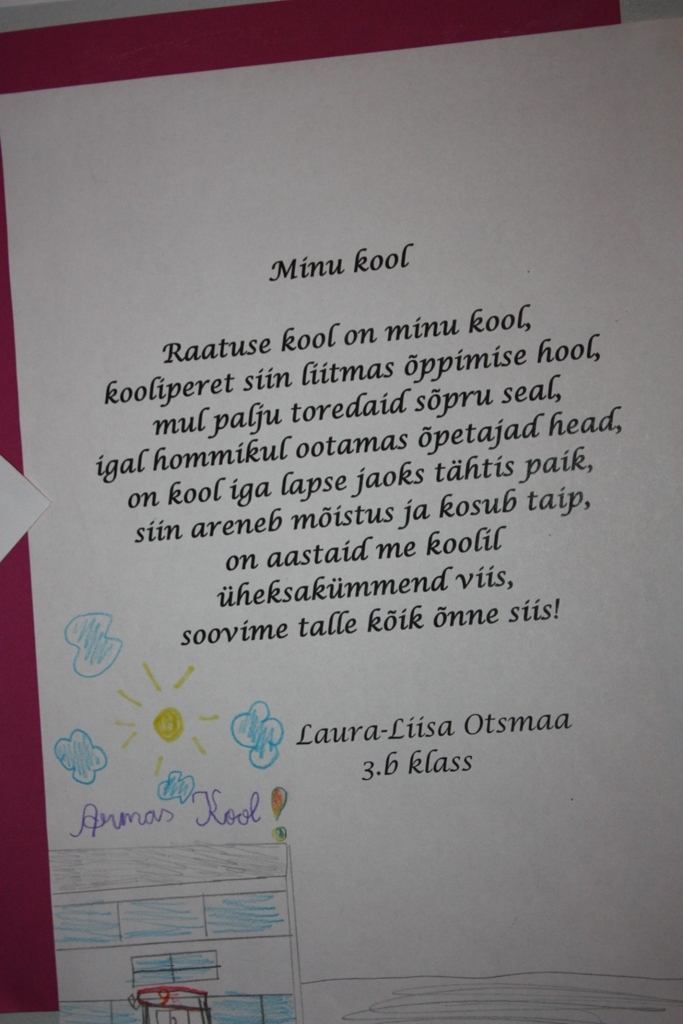 Minu kool
Raatuse kool on minu kool,
kooliperet siin liitmas õppimise hool,
mul palju toredaid sõpru seal,
igal hommikul ootamas õpetajad head,
on kool iga lapse jaoks tähtis paik,
siin areneb mõistus ja kosub taip,
on aastaid me koolil
üheksakümmend viis,
soovime talle kõik õnne siis!
Laura-Liisa Otsmaa
3.b klass
Armas Kool!